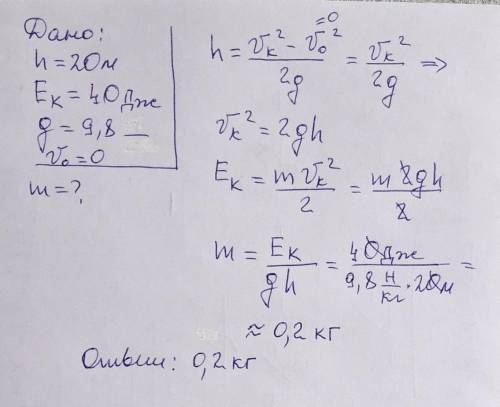 Дано:
h = 20м
Eк = 40 Дж
g = 9,8
v₀ = 0
m = ?
h = (vк² - v₀²)/2g = vк²/2g ⇒
=0
vк² = 2gh
Eк = m vк²/2 = m 2gh/2
m = Eк/gh = 40Дж/(9,8 Н/кг · 20м) =
≈ 0,2 кг
Ответ: 0,2 кг